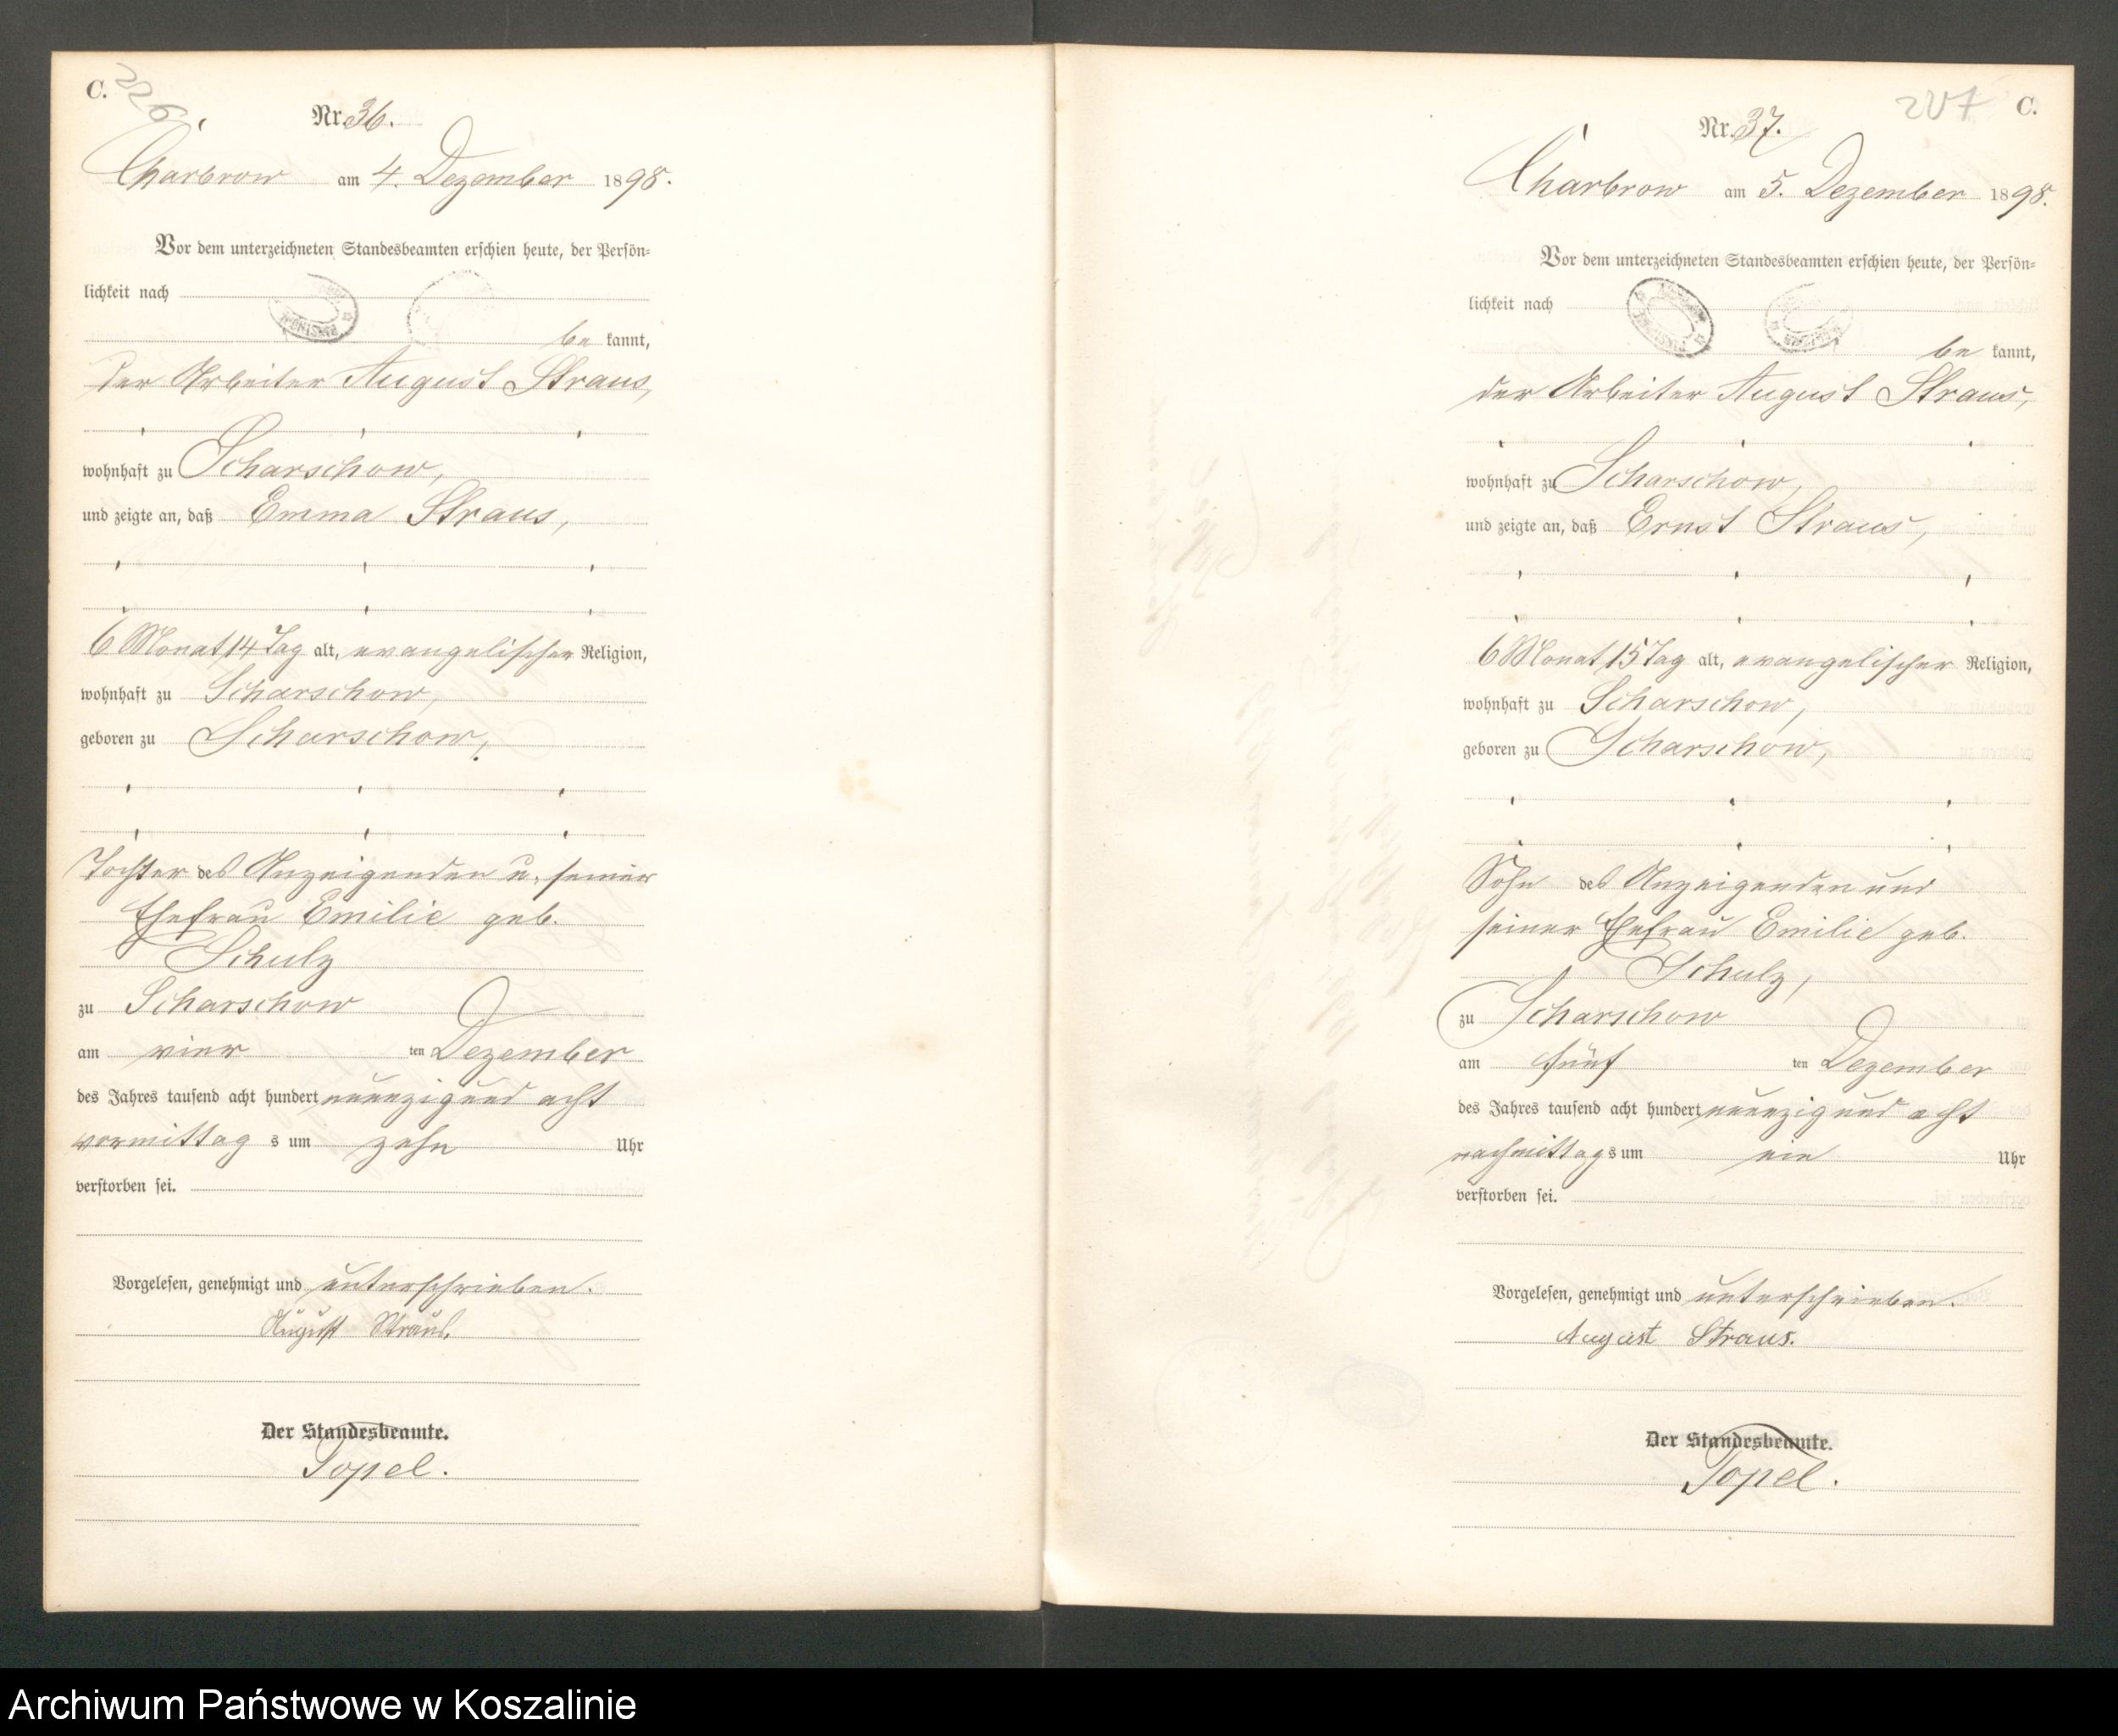 C.
Nr. 36.
Charbrow am 4. Dezember 1898.
Vor dem unterzeichneten Standesbeamten erschien heute, der Persön-
lichkeit nach
be kannt,
der Arbeiter August Straus,
wohnhaft zu Scharschow,
und zeigte an, daß Emma Straus,
6 Monat 14 Tag alt, evangelischer Religion,
wohnhaft zu Scharschow,
geboren zu Scharschow,
Tochter des Anzeigenden u. seiner
Ehefrau Emilie geb.
Schulz
zu Scharschow
am vier ten Dezember
des Jahres tausend acht hundert neunzig und acht
vormittag s um zehn Uhr
verstorben sei.
Vorgelesen, genehmigt und unterschrieben.
August Straus.
Der Standesbeamte.
Topel.
207 C.
Nr. 37.
Charbrow am 5. Dezember 1898.
Vor dem unterzeichneten Standesbeamten erschien heute, der Persön-
lichkeit nach
be kannt,
der Arbeiter August Straus,
wohnhaft zu Scharschow,
und zeigte an, daß Ernst Straus,
6 Monat 15 Tag alt, evangelischer Religion,
wohnhaft zu Scharschow,
geboren zu Scharschow,
Sohn des Anzeigenden und
seiner Ehefrau Emilie geb.
Schulz,
zu Scharschow
am fünf ten Dezember
des Jahres tausend acht hundert neunzig und acht
nachmittag s um ein Uhr
verstorben sei.
Vorgelesen, genehmigt und unterschrieben.
August Straus.
Der Standesbeamte.
Topel.
Archiwum Państwowe w Koszalinie